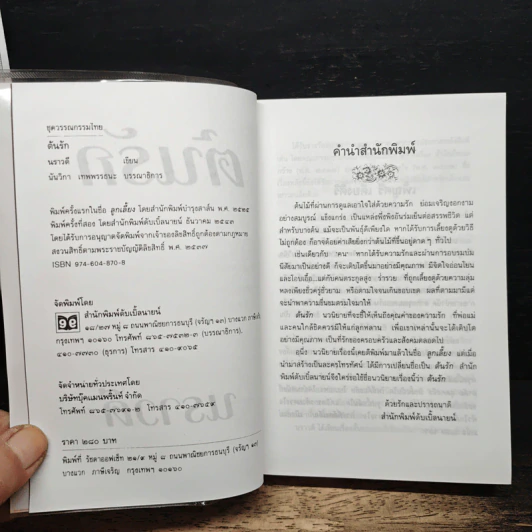 ชุดวรรณกรรมไทย
ต้นรัก
นราวดี เขียน
นันวิภา เทพพรรธนะ บรรณาธิการ
พิมพ์ครั้งแรกในชื่อ ลูกเลี้ยง โดยสำนักพิมพ์บำรุงสาส์น พ.ศ. ๒๕๒๕
พิมพ์ครั้งที่สอง โดยสำนักพิมพ์ดับเบิ้ลนายน์ ธันวาคม ๒๕๔๓
โดยได้รับการอนุญาตจัดพิมพ์จากเจ้าของลิขสิทธิ์ถูกต้องตามกฎหมาย
สงวนสิทธิ์ตามพระราชบัญญัติลิขสิทธิ์ พ.ศ. ๒๕๓๗
ISBN 974-604-870-8
จัดพิมพ์โดย
สำนักพิมพ์ดับเบิ้ลนายน์
๑๘/๒๗ หมู่ ๘ ถนนพาณิชยการธนบุรี (จรัญฯ ๑๓) บางแวก ภาษีเจริญ
กรุงเทพฯ ๑๐๑๖๐ โทรศัพท์ (บรรณาธิการ),
๔๑๐-๗๗๓๐ (ธุรการ) โทรสาร ๔๑๐-๙๐๖๕
จัดจำหน่ายทั่วประเทศโดย
บริษัทบุ๊คแมนพริ้นท์ จำกัด
โทรศัพท์ โทรสาร ๔๑๐-๗๖๔๙
ราคา ๒๘๐ บาท
พิมพ์ที่ รัยดาออฟเซ็ท ๒๑/๙ หมู่ ๘ ถนนพาณิชยการธนบุรี (จรัญฯ ๑๓)
บางแวก ภาษีเจริญ กรุงเทพฯ ๑๐๑๖๐
คำนำสำนักพิมพ์
ต้นไม้ที่ผ่านการดูแลเอาใจใส่ด้วยความรัก ย่อมเจริญงอกงาม
อย่างสมบูรณ์ แข็งแกร่ง เป็นแหล่งพึ่งพิงอันร่มเย็นต่อสรรพชีวิต แต่
สำหรับบางต้น แม้จะเป็นพันธุ์ดีเพียงใด หากได้รับการเลี้ยงดูด้วยวิธี
ไม่ถูกต้อง ก็อาจด้อยค่าเสียยิ่งกว่าต้นไม้ที่ขึ้นอยู่ดาดๆ ทั่วไป
เช่นเดียวกับ 'คน' หากได้รับความรักและผ่านการอบรมบ่ม
นิสัยมาเป็นอย่างดี ก็จะเติบโตขึ้นมาอย่างมีคุณภาพ มีจิตใจอ่อนโยน
และโอบเอื้อ แต่กับคนตระกูลสูง ร่ำรวย ที่ถูกเลี้ยงดูด้วยความลุ่ม
หลงเพียงชั่วครู่ชั่วยาม หรือตามใจจนเกินขอบเขต ผลที่ตามมามีแต่
จะนำพาความขื่นขมตรมใจมาให้
ต้นรัก นวนิยายที่จะชี้ให้เห็นถึงคุณค่าของความรัก ที่พ่อแม่
และคนใกล้ชิดควรมีให้แก่ลูกหลาน เพื่อเขาเหล่านั้นจะได้เติบโต
อย่างมีคุณภาพ เป็นที่รักของครอบครัวและสังคมตลอดไป
อนึ่ง นวนิยายเรื่องนี้เคยตีพิมพ์มาแล้วในชื่อ ลูกเลี้ยง แต่เมื่อ
นำมาสร้างเป็นละครโทรทัศน์ ได้มีการเปลี่ยนชื่อเป็น ต้นรัก สำนัก
พิมพ์ดับเบิ้ลนายน์จึงใคร่ขอใช้ชื่อนวนิยายเรื่องนี้ว่า ต้นรัก
ด้วยรักและปรารถนาดี
สำนักพิมพ์ดับเบิ้ลนายน์